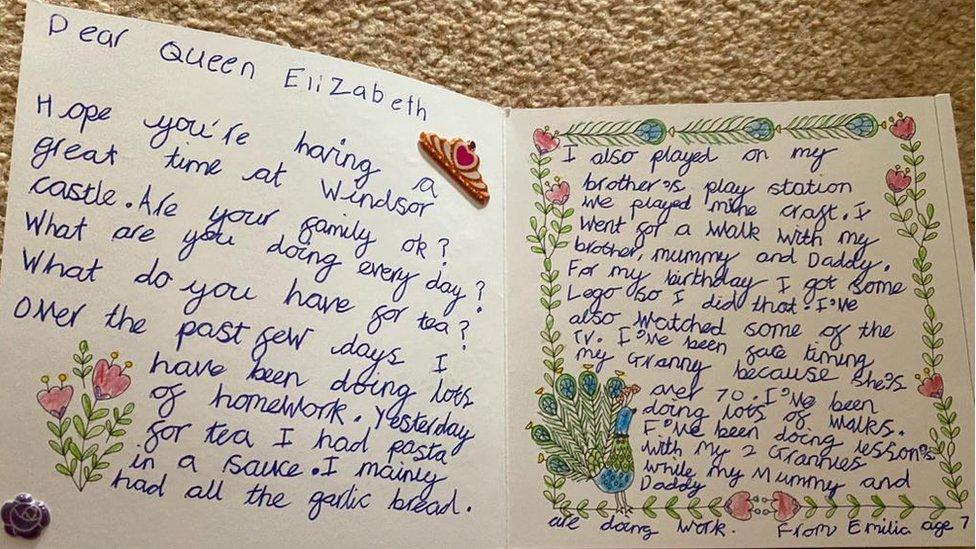 Dear Queen Elizabeth
Hope you're having a
great time at Windsor
castle. Are your family ok?
What are you doing every day?
What do you have for tea?
Over the past few days I
have been doing lots
of homework. Yesterday
for tea I had pasta
in a sauce. I mainly
had all the garlic bread.
I also played on my
brother's play station
we played mine craft. I
went for a walk with my
brother, mummy and Daddy.
For my birthday I got some
Lego so I did that. I've
also watched some of the
TV. I've been face timing
my Granny because she's
over 70. I've been
doing lots of walks.
I've been doing lesson's
with my 2 Grannies
while my Mummy and
Daddy
are doing work. From Emilia age 7